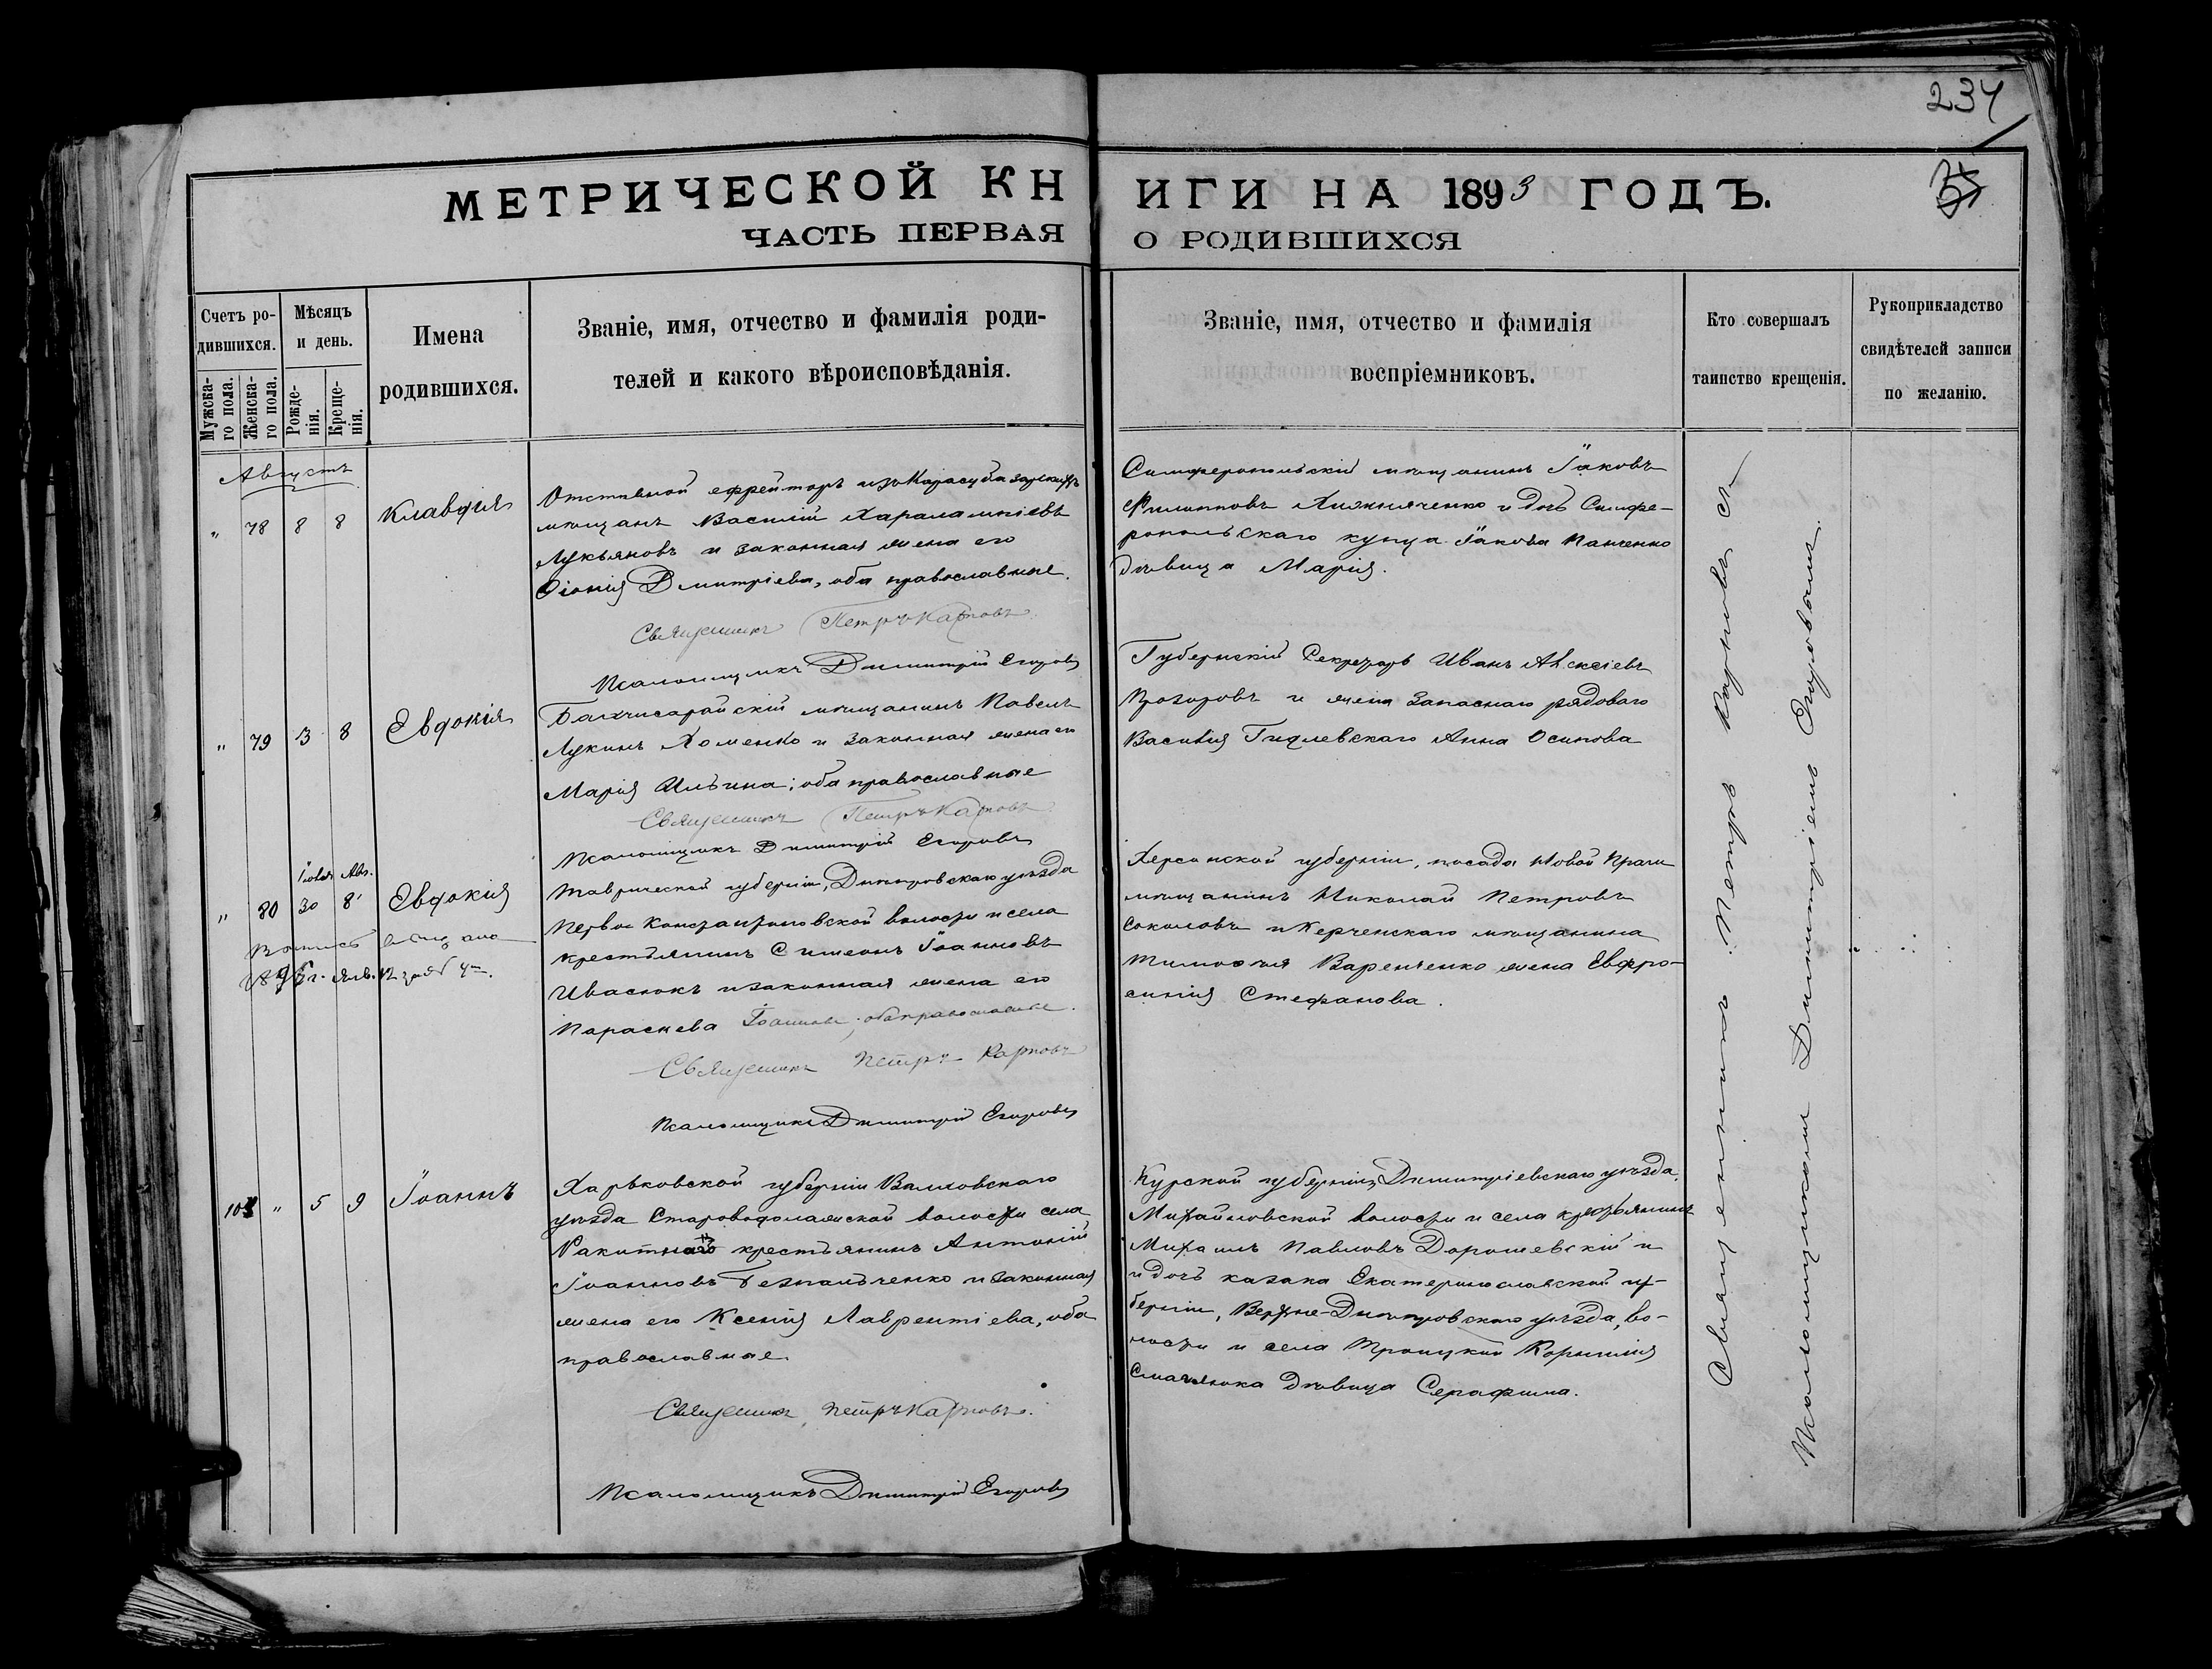 234
МЕТРИЧЕСКОЙ КНИГИ НА 1893 ГОДЪ.
ЧАСТЬ ПЕРВАЯ О РОДИВШИХСЯ
Счетъ ро-
дившихся.
Мужска-
го пола.
Женска-
го пола.
Мѣсяцъ
и день.
Рожде-
нія.
Креще-
нія.
Имена
родившихся.
Званіе, имя, отчество и фамилія роди-
телей и какого вѣроисповѣданія.
Званіе, имя, отчество и фамилія
воспріемниковъ.
Кто совершалъ
таинство крещенія.
Рукоприкладство
свидѣтелей записи
по желанію.
Августъ
" 78 8 8 Клавдія
Отставной ефрейторъ изъ Карасубазарскихъ
мѣщанъ Василій Харалампіевъ
Лукьяновъ и законная жена его
Ѳіонія Дмитріева, оба православные.
Священникъ Петръ Карповъ
Псаломщикъ Димитрій Егоровъ
Симферопольскій мѣщанинъ Іаковъ
Филипповъ Хижняченко и дочь Симфе-
ропольскаго купца Іакова Панченко
дѣвица Марія.
" 79 3 8 Евдокія
Бахчисарайскій мѣщанинъ Павелъ
Лукинъ Хоменко и законная жена его
Марія Ильина; оба православные
Священникъ Петръ Карповъ
Псаломщикъ Димитрій Егоровъ
Губернскій Секретарь Иванъ Алексіевъ
Прозоровъ и жена запаснаго рядоваго
Василія Гидлевскаго Анна Осипова
Іюля Авг.
" 80 30 8 Евдокія
Таврической губерніи, Днѣпровскаго уѣзда
Перво Константиновской волости и села
крестьянинъ Симеонъ Іоанновъ
Ивасюкъ и законная жена его
Параскева Іоаннова; оба православные.
Священникъ Петръ Карповъ
Псаломщикъ Димитрій Егоровъ
Херсонской губерніи, посада Новой Праги
мѣщанинъ Николай Петровъ
Соколовъ и Керченскаго мѣщанина
Тимофея Варенченко жена Евфро-
синія Стефанова.
103 " 5 9 Іоаннъ
Харьковской губерніи Валковскаго
уѣзда Староводолажской волости села
Ракитнаго крестьянинъ Антоній
Іоанновъ Безпальченко и законная
жена его Ксенія Лаврентіева, оба
православные.
Священникъ Петръ Карповъ.
Псаломщикъ Димитрій Егоровъ
Курской губерніи, Димитріевскаго уѣзда,
Михайловской волости и села крестьянинъ
Михаилъ Павловъ Дорошевскій и
и дочь казака Екатеринославской гу-
берніи, Верхне-Днѣпровскаго уѣзда, во-
лости и села Троицкой Корнилія
дѣвица Серафима.
Священникъ Петръ Карповъ съ
Псаломщикомъ Димитріемъ Егоровымъ.